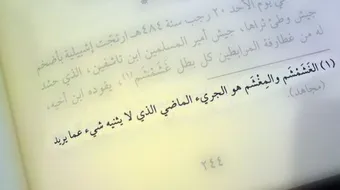 في يوم الأحد ٢٠ رجب سنة ٤٨٤هـ ارتجّت إشبيلية بأضخم
جيش وطئ ثراها، جيش أمير المسلمين ابن تاشفين، الذي حشد
له من غطارفة المرابطين كل بطل غَشَمْشَم(١)، يقوده ابن أخيه،
(١) الغَشَمْشَم والمِغْشَم هو الجريء الماضي الذي لا يثنيه شيء عما يريد
(مجاهد).
٢٤٤